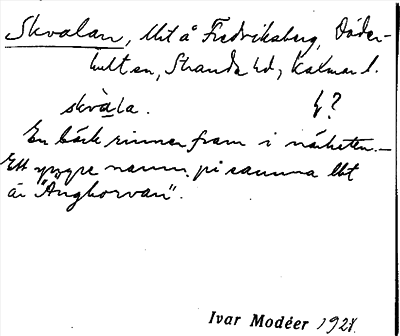 Skvalan, lht å Fredriksberg, Döder-
hultsn, Stranda hd, Kalmar l.
skvàla. f?
En bäck rinner fram i närheten. —
Ett yngre namn på samma lht
är "Ångkorvan".
Ivar Modéer 1928.